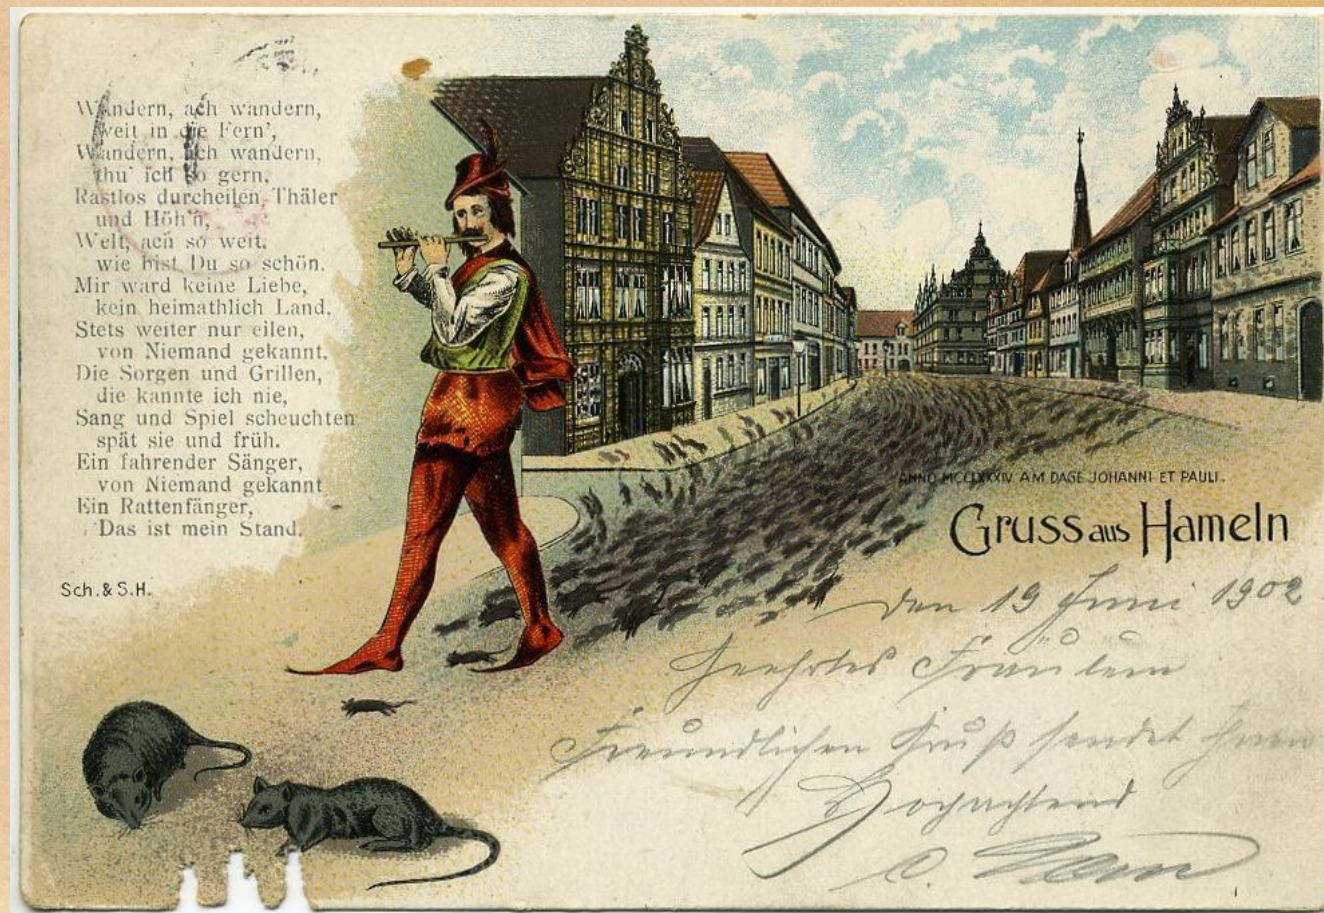 Wandern, ach wandern,
weit in die Fern',
Wandern, ach wandern,
thu' ich so gern.
Rastlos durcheilen, Thäler
und Höh'n,
Welt, ach so weit,
wie bist Du so schön.
Mir ward keine Liebe,
kein heimathlich Land,
Stets weiter nur eilen,
von Niemand gekannt.
Die Sorgen und Grillen,
die kannte ich nie,
Sang und Spiel scheuchten
spät sie und früh.
Ein fahrender Sänger,
von Niemand gekannt
Ein Rattenfänger,
Das ist mein Stand.
Sch. & S.H.
ANNO MCCLXXXIV AM DAGE JOHANNI ET PAULI.
Gruss aus Hameln
den 19 Juni 1902
Geehrtes Fräulein
Freundlichen Gruß sendet Ihnen
Hochachtend